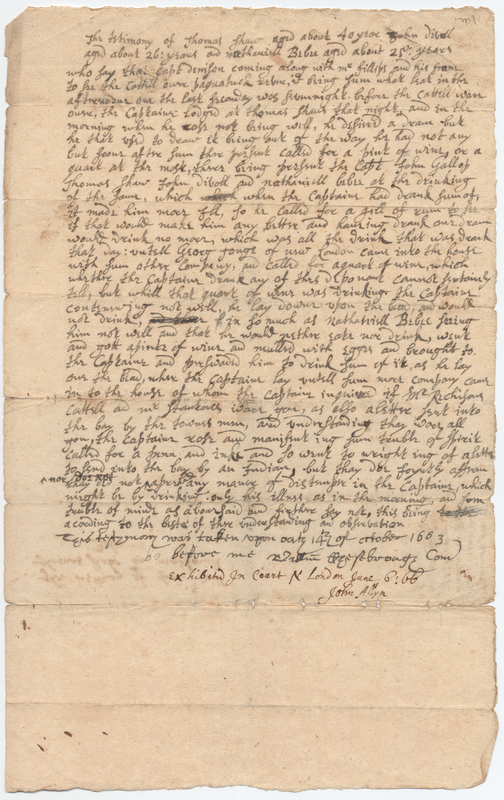 The testimony of Thomas Shaw aged about 40 years John divoll
aged about 26: years and nathaniell Bebee aged about 25: years
who say that Capt denison coming along with mr fillips and his
to se the Cattell over paquatuck river, it being sum what lat in the
afternoune one the last secunday was sevennight before the Cattell wear
over, the Captaine Lodged at thomas shaws that night, and in the
morning when he rose not being well, he desired a dram but
he that used to draw it being out of the way he had not any
but soone after sum there present called for a pint of wine, or a
quart at the most, there being present the Capt John Gallop
Thomas Shaw John divoll and nathaniell bebee at the drinking
of the same, which when the Captaine had drank sum of,
it made him moer Ell, so he called for a gill of rum to se
if that would make him any better and haveing drank one dram
would drink no more, which was all the drink that was drank
that day: untell Georg tonge of new London came into the house
with sum other Company, and called for a quart of wine, which
whether the Captaine drank any of this deponant cannot sertainly
tell, but whilst that quart of wine was drinking the Captaine
contenewing not well, he lay downe upon the bead, and would
not drink, in so much as nathaniell Bebee seeing
him not well and that he would nether eate nor drink, went
and gott a pinte of wine and mulled with eggs and brought to
the Captaine and preswaded him to drink sum of it, as he lay
one the bead, where the Captaine lay untell sum more company came
in to the house of whom the Captaine inquired if Mr Richison
Cattell and mr Stantones wear gon, as also a letter sent into
the bay by the townes men, and understanding thay wear all
gon, the Captaine rose and manifesting sum truble of spirit
called for a penn and ink and so went to wrighting of a letter
to send into the bay by an Indian, but thay doe joyntly affirm
nor doe not
thay did not aprove any maner of distemper in the Captaine, which
might be by drinking: only his illness, as in the morning, and som
truble of minde as abovesaid and further say not, this being
acording to the best of there understanding and observation
This testymony was taken upon oath 14th of october 1663
before me Cheesebrough Com
Exhibited In Court N London June 6: 66
John Allyn